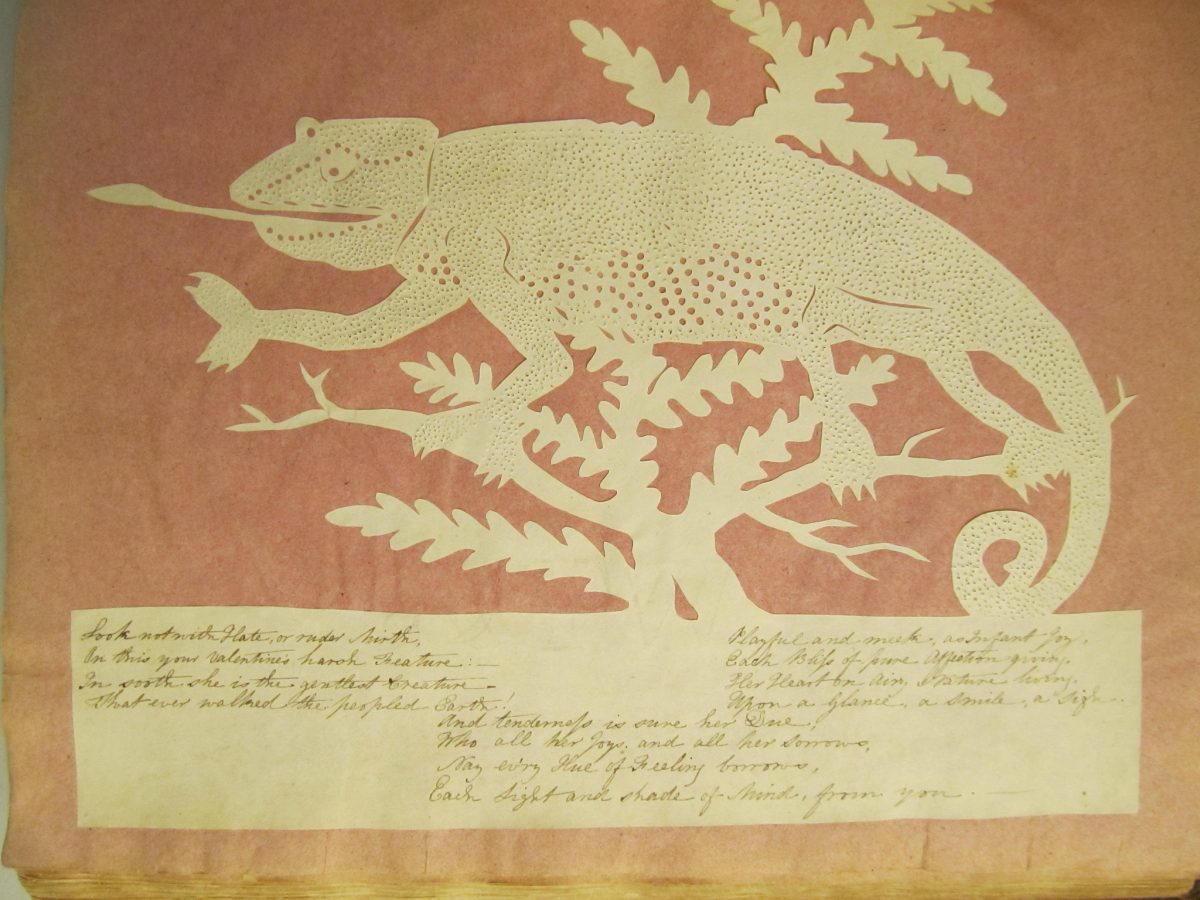 Look not with Hate, or ruder Mirth,
On this your Valentine's harsh Feature: —
In sooth she is the gentlest Creature —
That ever walked the peopled Earth!
Playful and meek, as Infant Joy,
Each Bliss of pure Affection giving,
Her Heart on Airy Nature living,
Upon a Glance, a Smile, a Sigh.
And tenderness is sure her Due,
Who all her Joys, and all her sorrows,
Nay ev'ry Hue of Feeling borrows,
Each Light and shade of Mind, from you —